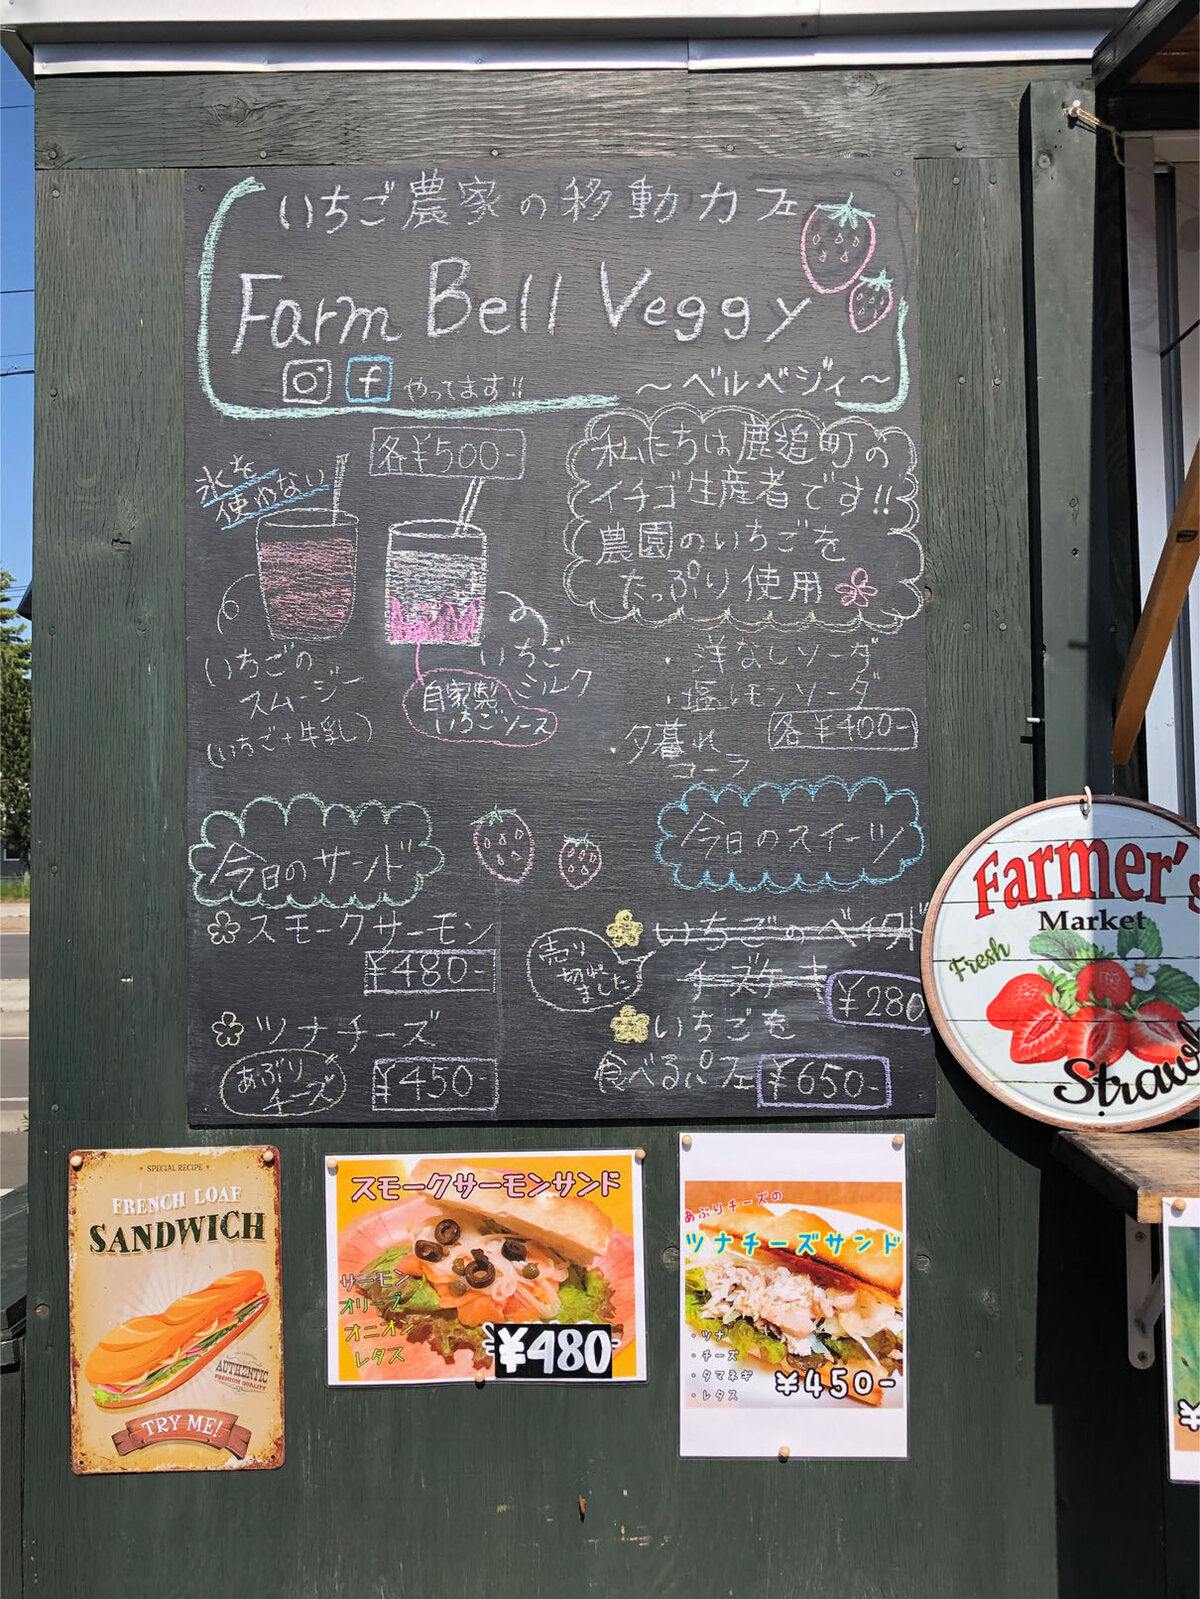 いちご農家の移動カフェ
Farm Bell Veggy
f やってます!!
～ベルベジィ～
各¥500-
氷を
使わない
いちごの
スムージー
(いちご+牛乳)
いちご
ミルク
自家製
いちごソース
私たちは鹿追町の
イチゴ生産者です!!
農園のいちごを
たっぷり使用
・洋なしソーダ
・塩レモンソーダ
・夕暮れ
コーラ
各¥400-
今日のサンド
スモークサーモン
¥480-
ツナチーズ
あぶり
チーズ
¥450-
今日のスイーツ
いちごのベイクド
チーズケーキ
売り
切れ
ました
¥280
いちごを
食べるパフェ
¥650-
Farmer's
Market
Fresh
SPECIAL RECIPE
FRENCH LOAF
SANDWICH
AUTHENTIC
PREMIUM QUALITY
TRY ME!
スモークサーモンサンド
サーモン
オリーブ
オニオン
レタス
¥480-
あぶりチーズの
ツナチーズサンド
・ツナ
・チーズ
・タマネギ
・レタス
¥450-
¥